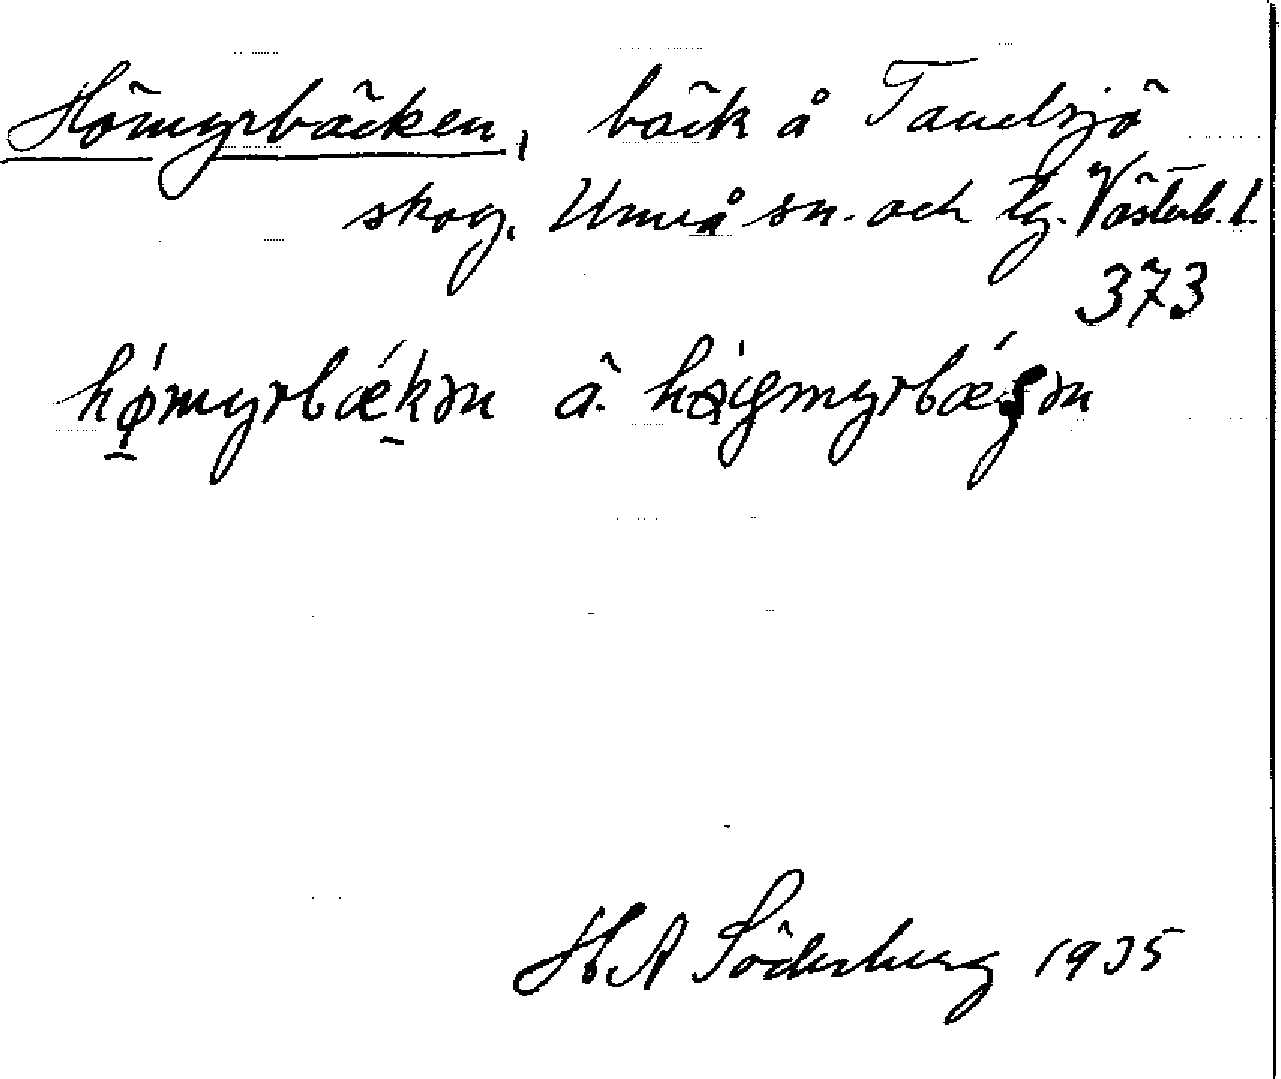 Hömyrbäcken, bäck å Tavelsjö
skog. Umeå sn. och tg. Västerb. l.
373
hǿmyrbǽkən å. myrbæ
H A Söderberg 1935